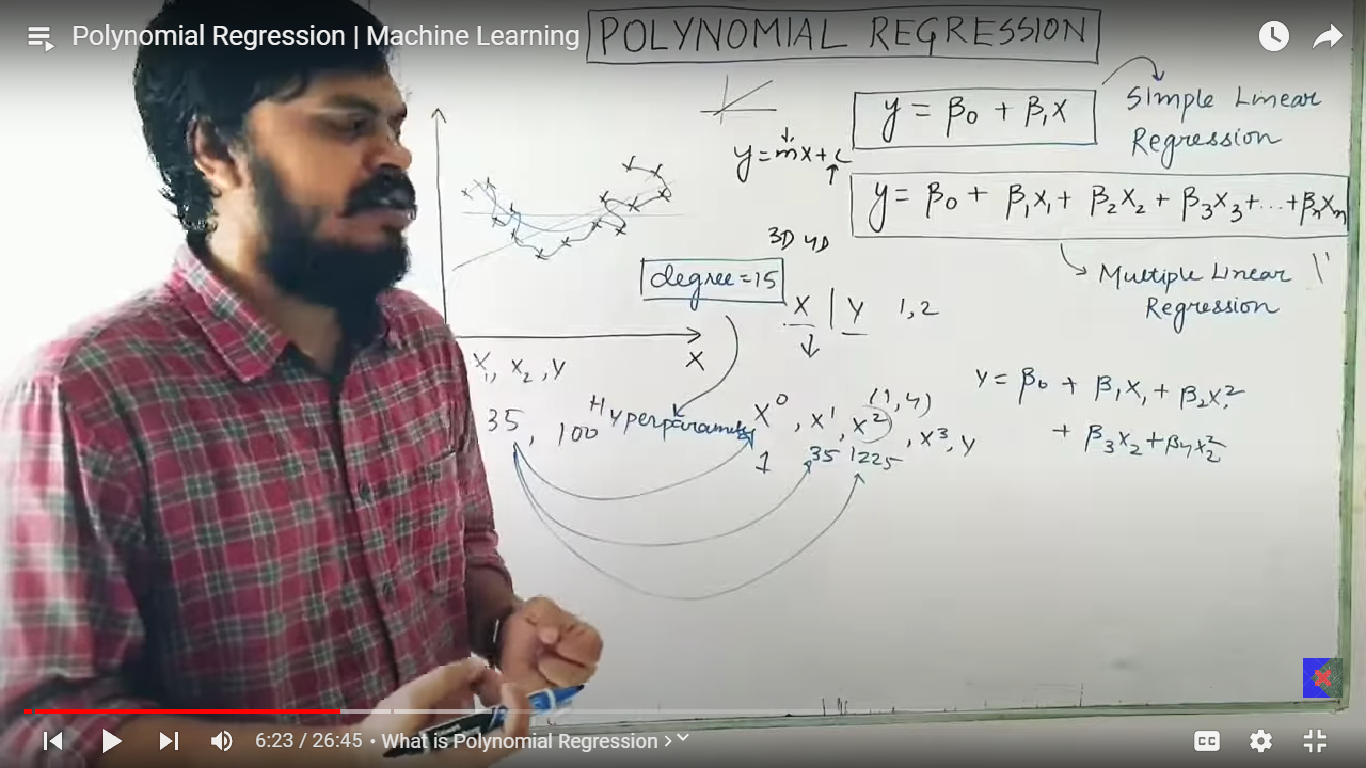 Polynomial Regression | Machine Learning
POLYNOMIAL REGRESSION
y = β₀ + β₁x
Simple Linear
Regression
y = mx + c
y = β₀ + β₁x₁ + β₂x₂ + β₃x₃ + ... + βₙxₙ
3D 4D
Multiple Linear
Regression
degree = 15
X | Y 1, 2
X
X₁, X₂, Y
35, 100
Hyperparameter
X⁰, X¹, X², X³, Y
(1, 4)
1 35 1225
Y = β₀ + β₁X₁ + β₂X₁²
+ β₃X₂ + β₄X₂²
6:23 / 26:45 • What is Polynomial Regression
CC